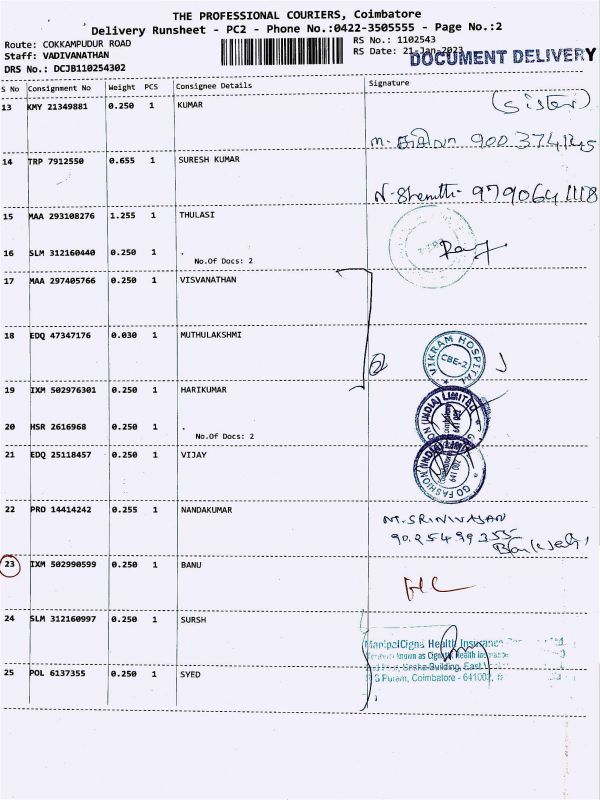 THE PROFESSIONAL COURIERS, Coimbatore
Delivery Runsheet - PC2 - Phone No.:0422-3505555 - Page No.:2
Route: COKKAMPUDUR ROAD RS No.: 1102543
Staff: VADIVANATHAN RS Date: 21-Jan-2023
DOCUMENT DELIVERY
DRS No.: DCJB110254302
S No Consignment No Weight PCS Consignee Details Signature
13 KMY 21349881 0.250 1 KUMAR (Sister)
900 3741145
14 TRP 7912550 0.655 1 SURESH KUMAR
9790641118
15 MAA 293108276 1.255 1 THULASI
16 SLM 312160440 0.250 1 .
No.Of Docs: 2
17 MAA 297405766 0.250 1 VISVANATHAN
18 EDQ 47347176 0.030 1 MUTHULAKSHMI
VIKRAM HOSPITAL CBE-2
19 IXM 502976301 0.250 1 HARIKUMAR
20 HSR 2616968 0.250 1 .
No.Of Docs: 2
GO FASHION (INDIA) LIMITED
641 002
21 EDQ 25118457 0.250 1 VIJAY
GO FASHION (INDIA) LIMITED
641 002
22 PRO 14414242 0.255 1 NANDAKUMAR M.SRINIVASAN
90254 99355
23 IXM 502990599 0.250 1 BANU
24 SLM 312160997 0.250 1 SURSH
ManipalCigna Health Insurance
known as Cigna Health
Building, East
R S Puram, Coimbatore - 641002,
25 POL 6137355 0.250 1 SYED